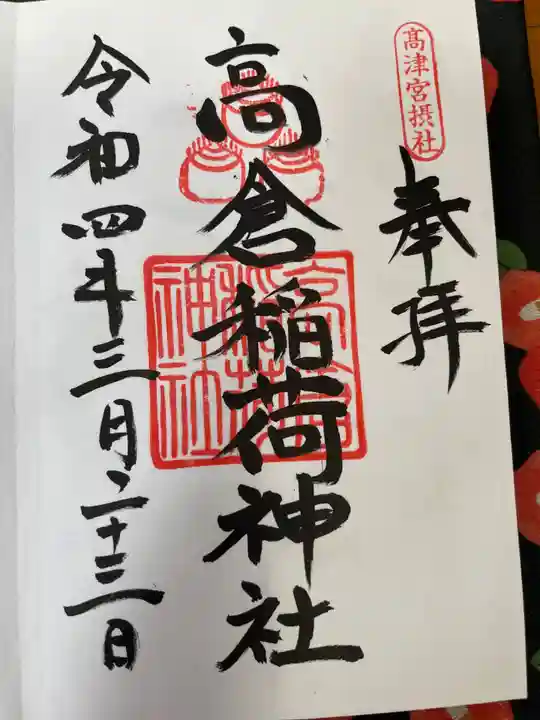 髙津宮摂社
奉拝
高倉稲荷神社
高倉稲荷神社
令和四年三月二十三日